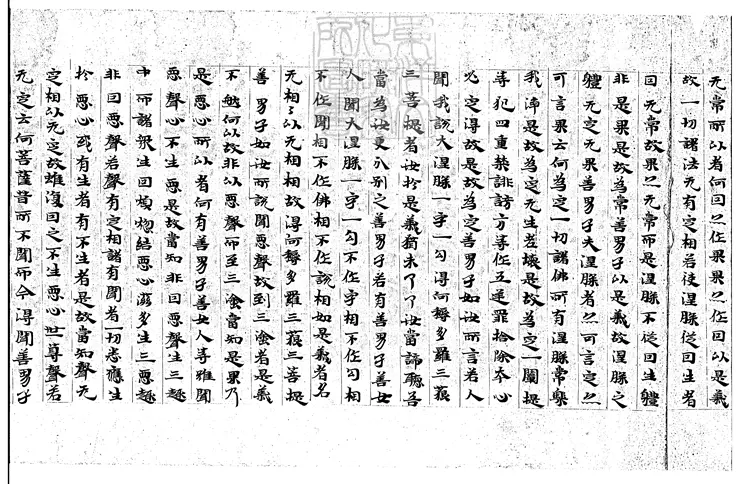 无常所以者何因亦作果果亦作因以是義
故一切諸法无有定相若使涅槃從因生者
因无常故果亦无常而是涅槃不從因生體
非是果是故為常善男子以是義故涅槃之
體无定无果善男子夫涅槃者亦可言定亦
可言果云何為定一切諸佛所有涅槃常樂
我淨是故為定无生老壞是故為定一闡提
等犯四重禁誹謗方等作五逆罪捨除本心
必定得故是故為定善男子如汝所言若人
聞我說大涅槃一字一句得阿耨多羅三藐
三菩提者汝於是義猶未了了汝當諦聽吾
當為汝更分別之善男子若有善男子善女
人聞大涅槃一字一句不作字相不作句相
不作聞相不作佛相不作說相如是義者名
无相〻以无相相故得阿耨多羅三藐三菩提
善男子如汝所說聞惡聲故到三塗者是義
不然何以故非以惡聲而至三塗當知是果乃
是惡心所以者何有善男子善女人等雖聞
惡聲心不生惡是故當知非因惡聲生三趣
中而諸眾生因煩惱結惡心滋多生三惡趣
非因惡聲若聲有定相諸有聞者一切悉應生
於惡心或有生者有不生者是故當知聲无
定相以无定故雖復因之不生惡心世尊聲若
无定云何菩薩昔所不聞而今得聞善男子